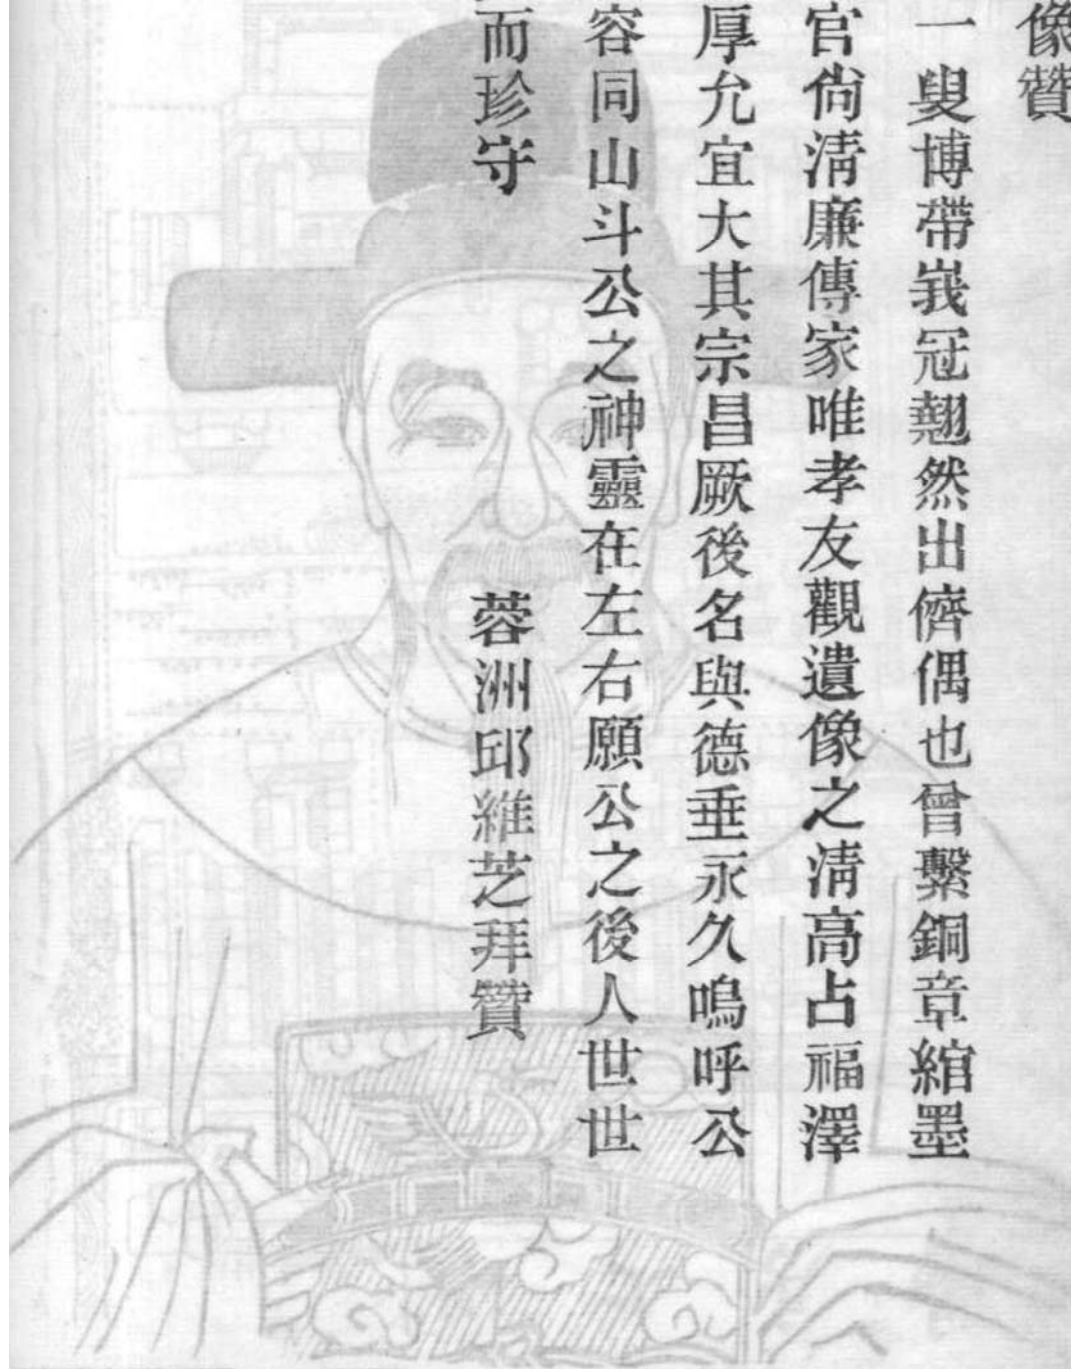 像贊
一叟博帶峩冠翹然出儕偶也曾繫銅章綰墨
官尙淸廉傳家唯孝友觀遺像之淸高占福澤
厚允宜大其宗昌厥後名與德垂永久嗚呼公
容同山斗公之神靈在左右願公之後人世世
而珍守
蓉洲邱維芝拜贊